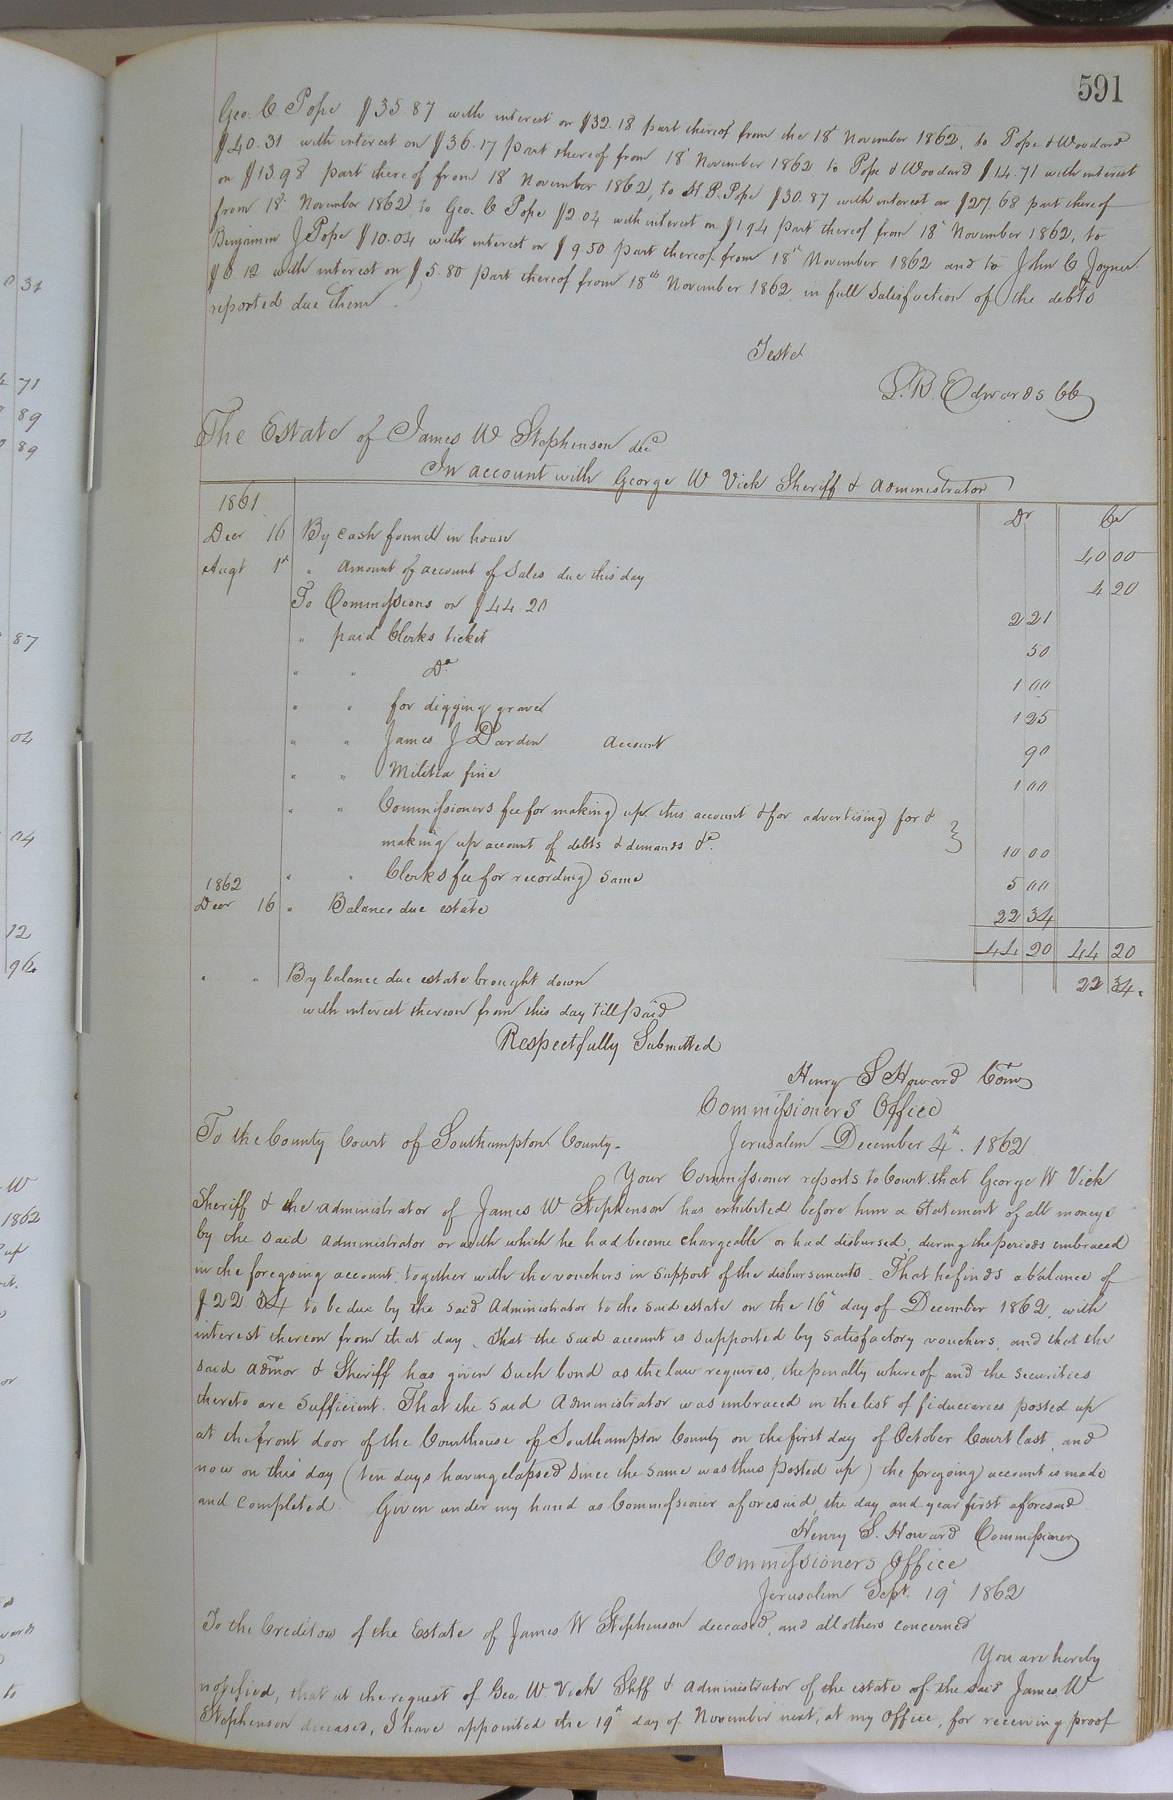 591
Geo. C Pope $35.87 with interest on $32.18 part thereof from the 18th November 1862, to Pope & Woodard
$40.31 with interest on $36.17 part thereof from 18th November 1862 to Pope & Woodard $14.71 with interest
on $13.98 part thereof from 18th November 1862, to H. P. Pope $30.87 with interest on $27.68 part thereof
from 18th November 1862, to Geo. C Pope $2.04 with interest on $1.94 part thereof from 18th November 1862, to
Benjamin J Pope $10.04 with interest on $9.50 part thereof from 18th November 1862 and to John C Joyner
$6.12 with interest on $5.80 part thereof from 18th November 1862 in full satisfaction of the debts
reported due them.
Teste
L. R. Edwards CC
The Estate of James W Stephenson decd
In account with George W Vick Sheriff & Administrator
1861 Dr Cr
Decr 16 By cash found in house 40 00
Augt 1st " Amount of account of Sales due this day 4 20
To Commissions on $44.20 2 21
" paid Clerks ticket 50
" " Do 1 00
" " for digging grave 1 25
" " James J Darden Account 90
" " Militia fine 1 00
" " Commissioners fee for making up this account & for advertising for &
making up account of debts & demands &c 10 00
" " Clerks fee for recording same 5 00
1862
Decr 16 " Balance due estate 22 34
44 20 44 20
" " By balance due estate brought down 22 34.
with interest thereon from this day till paid
Respectfully Submitted
Henry S Howard Comr
Commissioners Office
Jerusalem December 4th. 1862
To the County Court of Southampton County.
Your Commissioner reports to Court that George W Vick
Sheriff & the administrator of James W Stephenson has exhibited before him a Statement of all moneys
by the said administrator or with which he had become chargeable or had disbursed, during the periods embraced
in the foregoing account, together with the vouchers in support of the disbursements. That he finds a balance of
$22 34 to be due by the said Administrator to the said estate on the 16th day of December 1862, with
interest thereon from that day. That the said account is supported by satisfactory vouchers, and that the
said admor & Sheriff has given such bond as the law requires, the penalty whereof and the securities
thereto are sufficient. That the said Administrator was embraced in the list of fiduciaries posted up
at the front door of the Courthouse of Southampton County on the first day of October Court last, and
now on this day (ten days having elapsed since the same was thus posted up) the foregoing account is made
and completed. Given under my hand as Commissioner aforesaid, the day and year first aforesaid
Henry S. Howard Commissioner
Commissioners Office
Jerusalem Sept. 19th 1862
To the Creditors of the Estate of James W Stephenson deceased, and all others concerned
You are hereby
notified, that at the request of Geo. W Vick Shff & Administrator of the estate of the said James W
Stephenson deceased, I have appointed the 19th day of November next, at my Office, for receiving proof